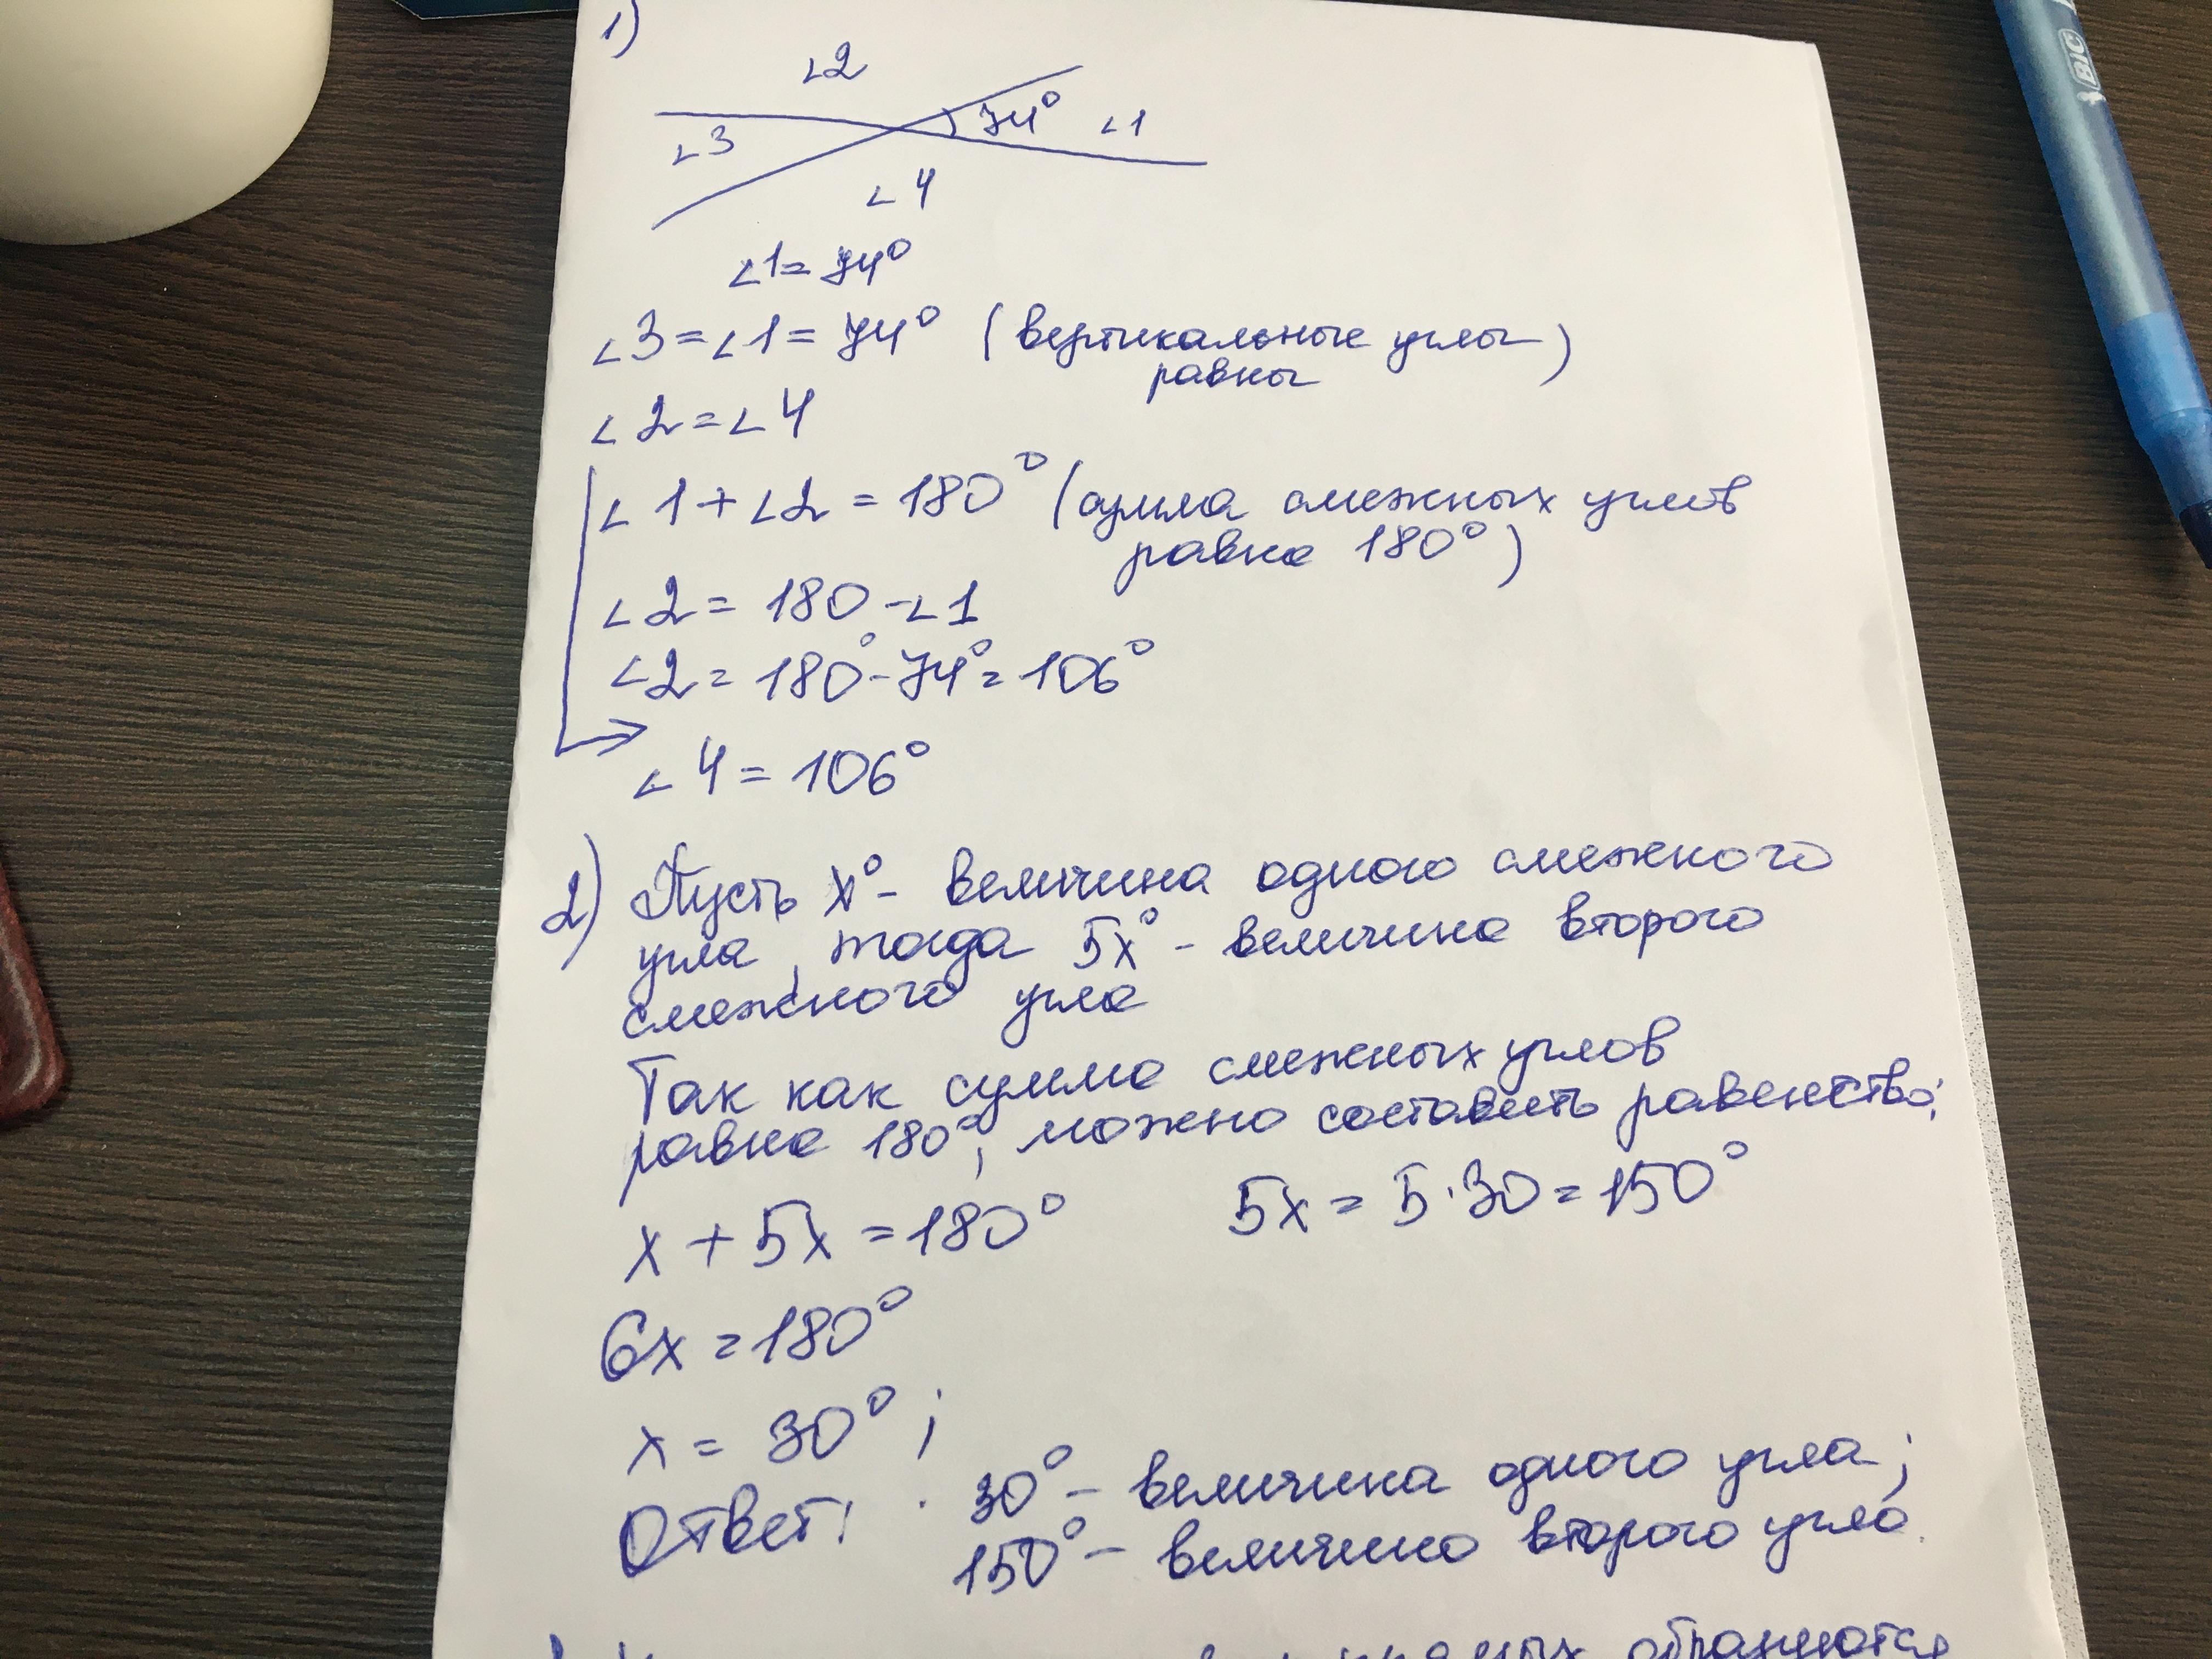 1)
∠2
74° ∠1
∠3
∠4
∠1 = 74°
∠3 = ∠1 = 74° (вертикальные углы
равны)
∠2 = ∠4
∠1 + ∠2 = 180° (сумма смежных углов
равна 180°)
∠2 = 180 - ∠1
∠2 = 180° - 74° = 106°
∠4 = 106°
2) Пусть x° - величина одного смежного
угла, тогда 5x° - величина второго
смежного угла
Так как сумма смежных углов
равна 180°, можно составить равенство:
x + 5x = 180° 5x = 5·30 = 150°
6x = 180°
x = 30°;
Ответ: 30° - величина одного угла;
150° - величина второго угла.
прямых образуются
BIC